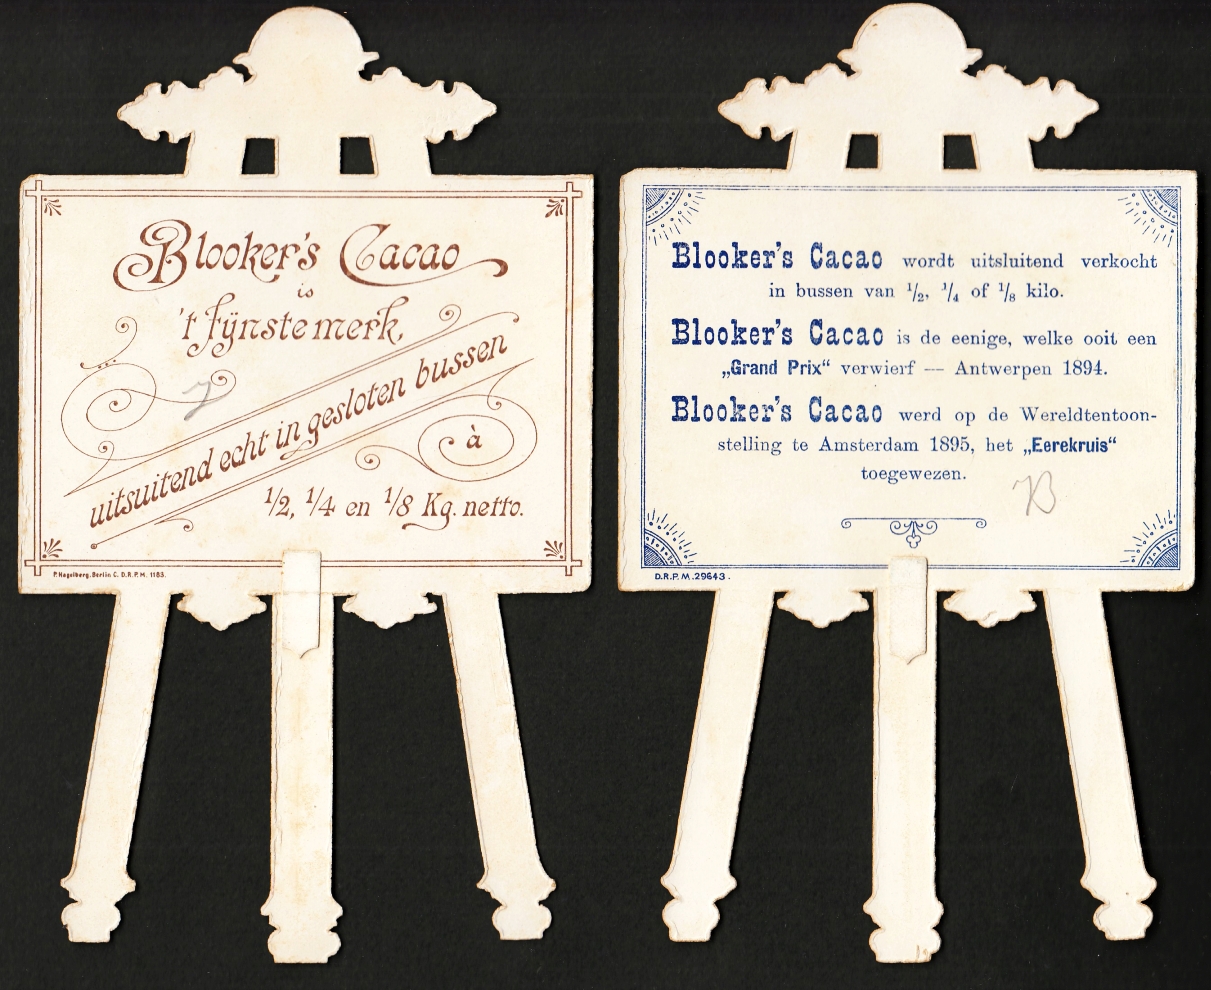 Blooker's Cacao
is
't fijnste merk,
uitsuitend echt in gesloten bussen
à
1/2, 1/4 en 1/8 Kg. netto.
P. Hagelberg. Berlin C. D.R.P.M. 1183.
Blooker's Cacao wordt uitsluitend verkocht
in bussen van 1/2, 1/4 of 1/8 kilo.
Blooker's Cacao is de eenige, welke ooit een
„Grand Prix“ verwierf — Antwerpen 1894.
Blooker's Cacao werd op de Wereldtentoon-
stelling te Amsterdam 1895, het „Eerekruis“
toegewezen.
D.R.P.M.29643.